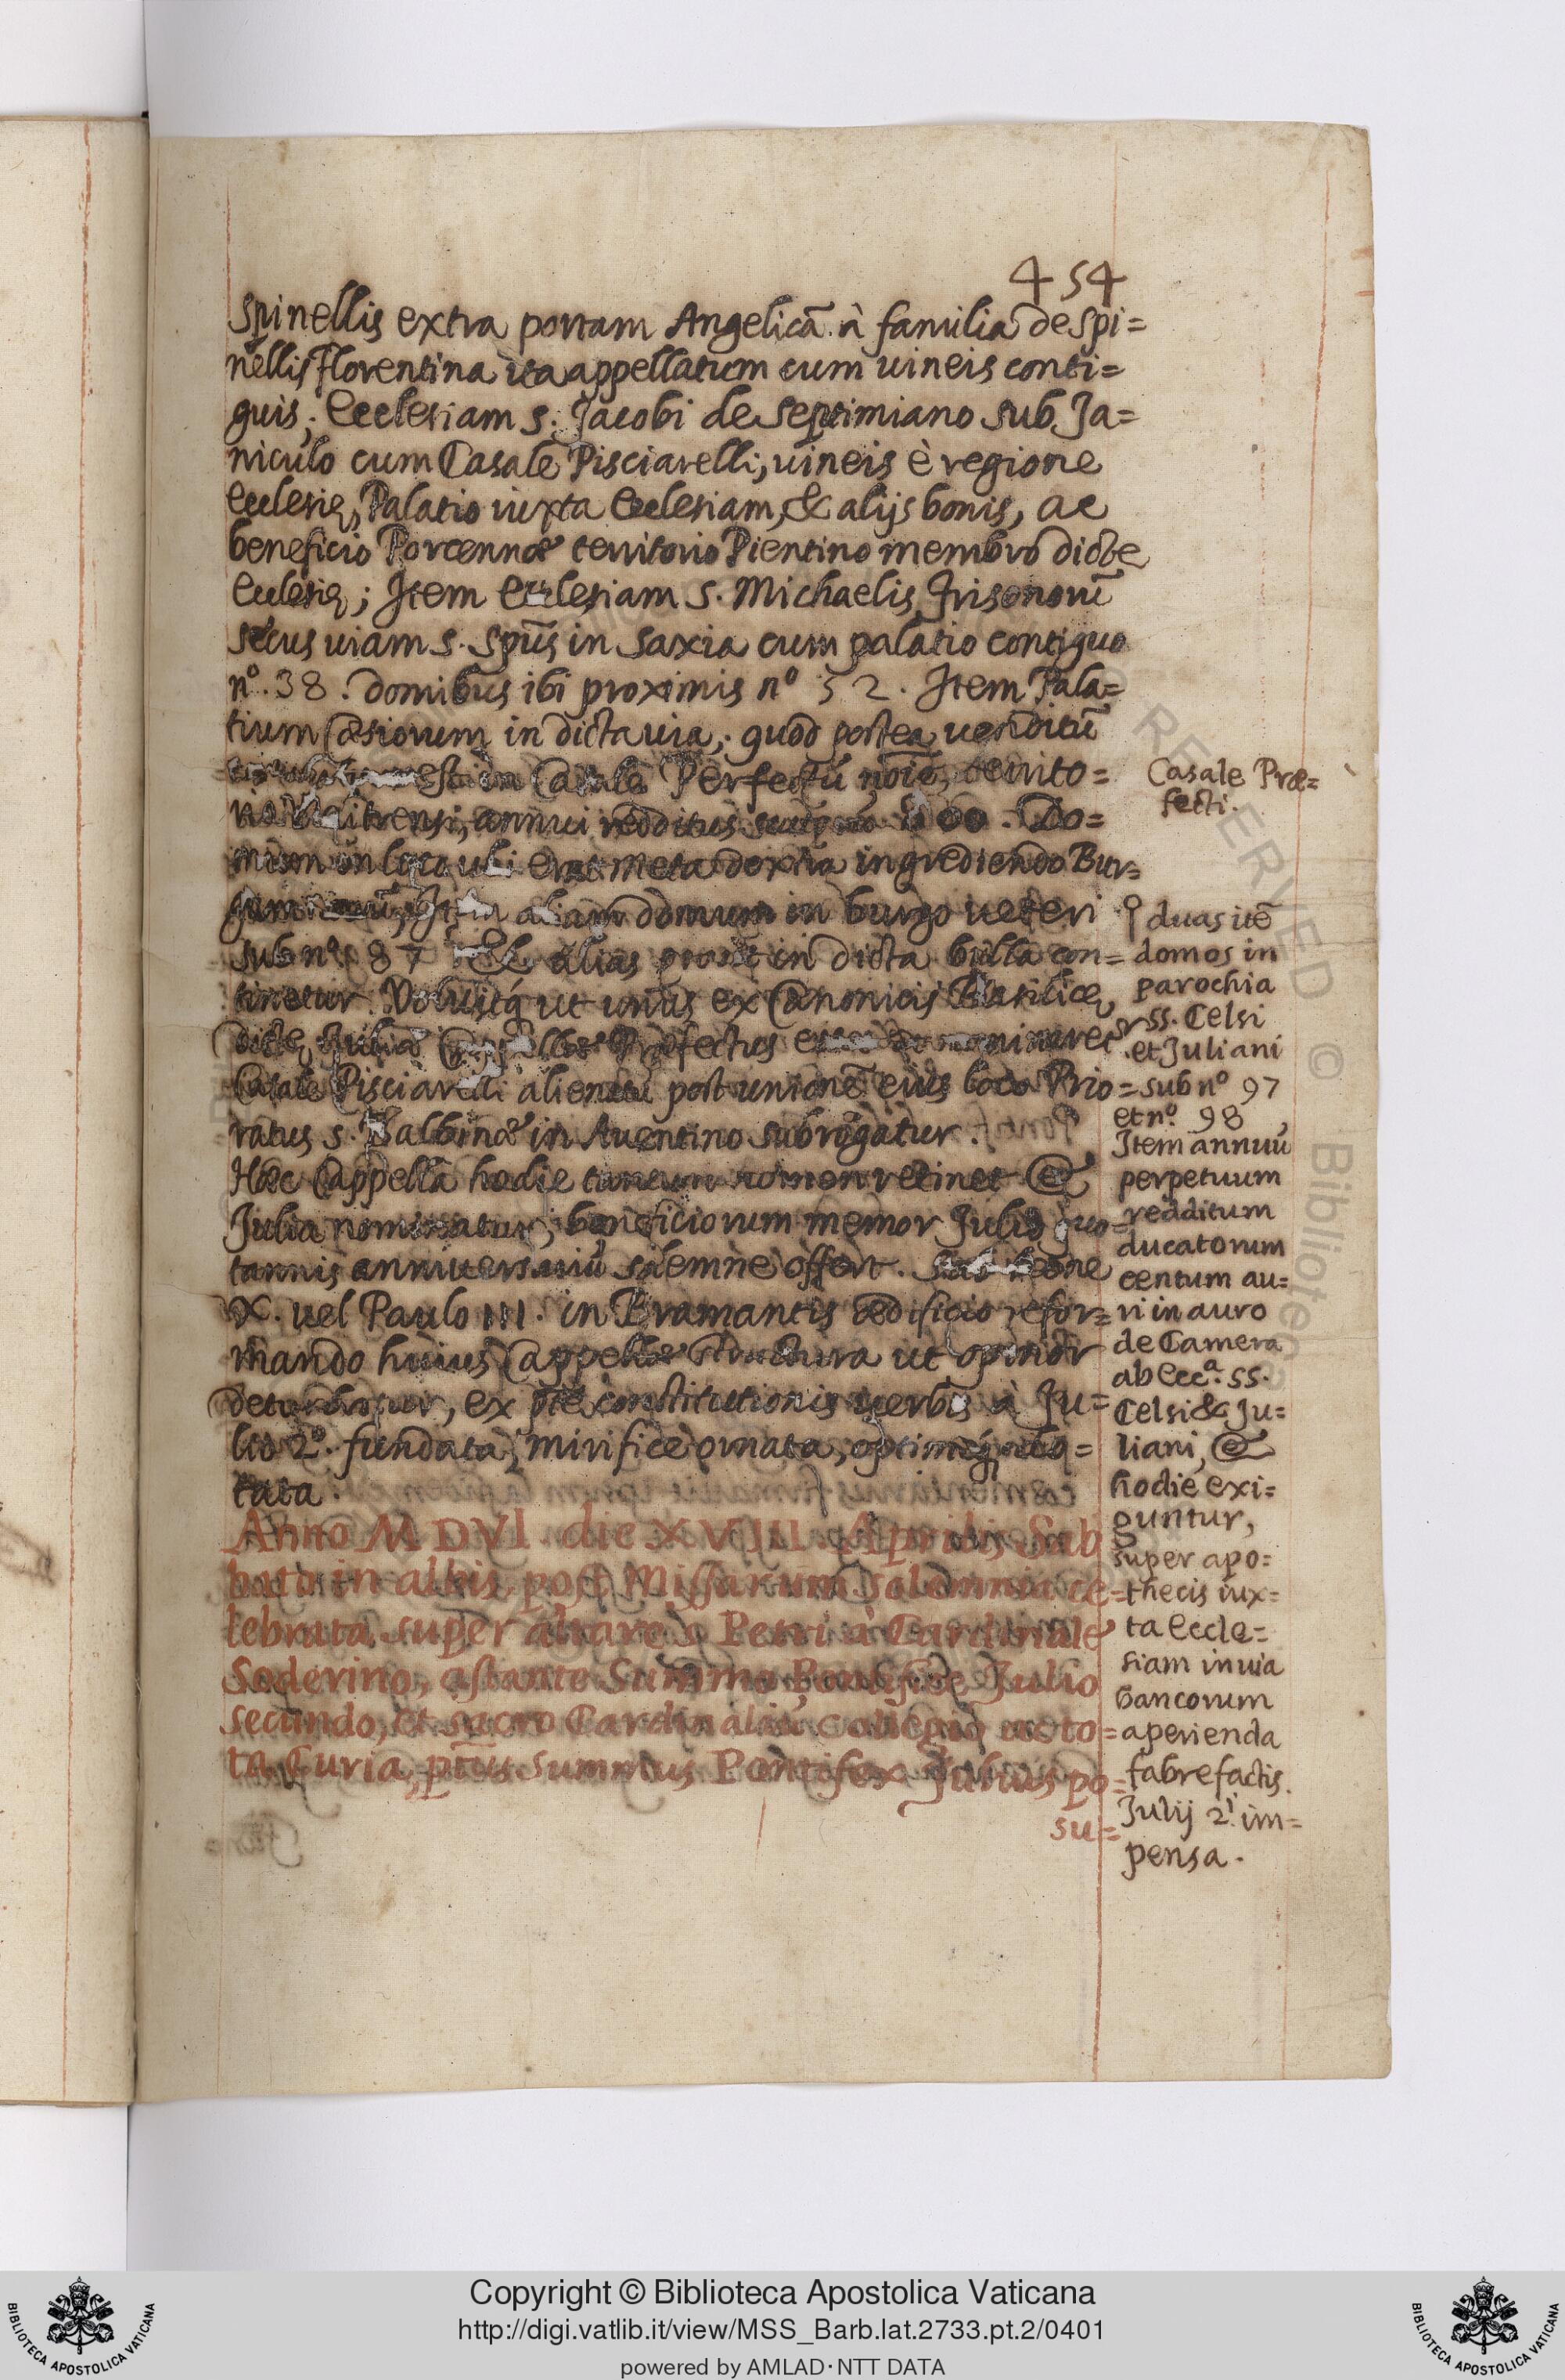 454
Spinellis extra portam Angelicã à familia de Spi=
nellis Florentina ita appellatum cum uineis conti=
guis; Ecclesiam S. Jacobi de Septimiano sub Ja=
niculo cum Casale Pisciarelli, uineis è regione
Ecclesię, Palatio iuxta Ecclesiam, & alijs bonis, ac
beneficio Porcennæ territorio Pientino membro dicte
Ecclesię; Item Ecclesiam S. Michaelis Frisonorũ
secus uiam S. Spũs in Saxia cum palatio contiguo
nº. 38. domibus ibi proximis nº 52. Item Pala=
tium Cæsiorum in dicta uia, quod postea uenditũ
est in Casale Perfectũ noie, territo=
annui redditus 800. Do=
mum in loco ubi erat meta dextra ingrediendo Bur=
aliam domum in burgo ueteri
sub nº 87 Et alias prout in dicta bulla con=
tinetur. Voluitq́ ut unus ex Canonicis Basilicę
dictę, Iulię Cappellæ Præfectus
Casale Pisciarelli post unionẽ eius loco Prio=
ratus S. Balbinæ in Auentino subrogatur.
Hæc Cappella hodie tantum nomen retinet &
Julia nominatur; beneficiorum memor Julio quo=
tannis anniuersariũ solemne offert. Sub Leone
X. uel Paulo III. in Bramantis ædificio refor=
mando huius Cappellæ structura ut opinor
deturbatur, ex pte constitutionis uerbis à Ju=
lio 2º. fundata, mirifice ornata, optimeq́ do=
tata.
Anno MDVI. die XVIII. Aprilis Sab
bato in albis, post Missarum solemnia ce=
lebrata super altare S. Petri à Cardinale
Soderino, astante Summo Pontifice Julio
secundo, et sacro Cardinaliũ collegio ac to=
ta Curia, ptus Summus Pontifex Julius po=
su=
Casale Præ=
fecti.
duas itẽ
domos in
parochia
SS. Celsi
et Juliani
sub nº 97
et nº. 98
Item annuũ
perpetuum
redditum
ducatorum
centum au=
ri in auro
de Camera
ab Eccª. SS.
Celsi & Ju=
liani, &
hodie exi=
guntur,
super apo=
thecis iux=
ta Eccle=
siam in uia
Bancorum
aperienda
fabrefactis
Julij 2i im=
pensa.
RESERVED © Biblioteca
BIBLIOTECA APOSTOLICA VATICANA
Copyright © Biblioteca Apostolica Vaticana
http://digi.vatlib.it/view/MSS_Barb.lat.2733.pt.2/0401
powered by AMLAD·NTT DATA
BIBLIOTECA APOSTOLICA VATICANA